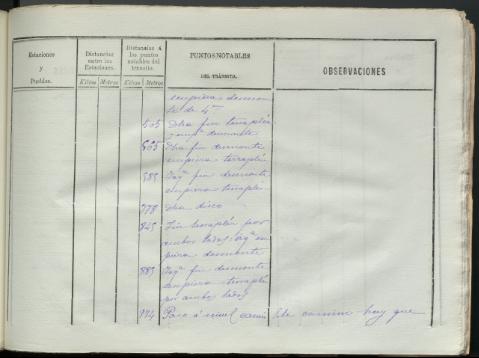 Estaciones
y
Pueblos.
Distancias
entre las
Estaciones.
Kilóms Metros
Distancias á
los puntos
notables del
tránsito.
Kilóms Metros
PUNTOS NOTABLES
DEL TRÁNSITO.
OBSERVACIONES
empieza desmon
te de 4m
505 Dha fin terraplén
y empª desmonte
565 Dha fin desmonte
empieza terraplén
585 Izqª fin desmonte
empieza terraple
778 Dha disco
845 Fin terraplén por
ambos lados izqª em
pieza desmonte
885 Izqª fin desmonte
empieza terraplén
por ambos lados
994 Paso á nivel camino
Este camino hay que